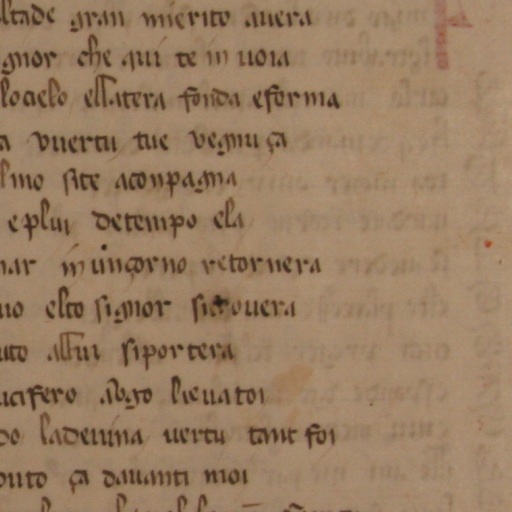 ltade gran merito auera
gnor che qui te in uoia
locielo ellatera fonda eforma
a vuertu tue vegnu ça
lmo site aconpagna
e plui detempo ela
nar in ungorno retornera
uo elto signor si mouera
uto allui siportera
ucifero abgo lieuatoi
do ladeuina uertu tant foi
outo ça dauanti moi